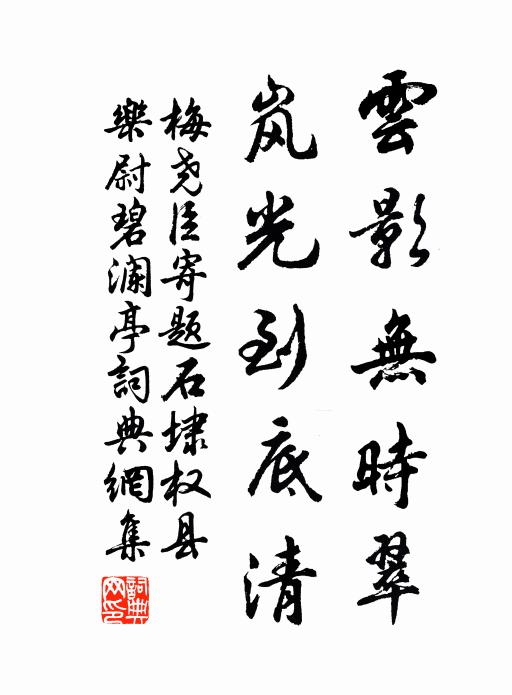 雲影無時翠
岚光到底清
梅尧臣寄题石埭权县
樂尉碧澜亭詞典網集
詞典
网印